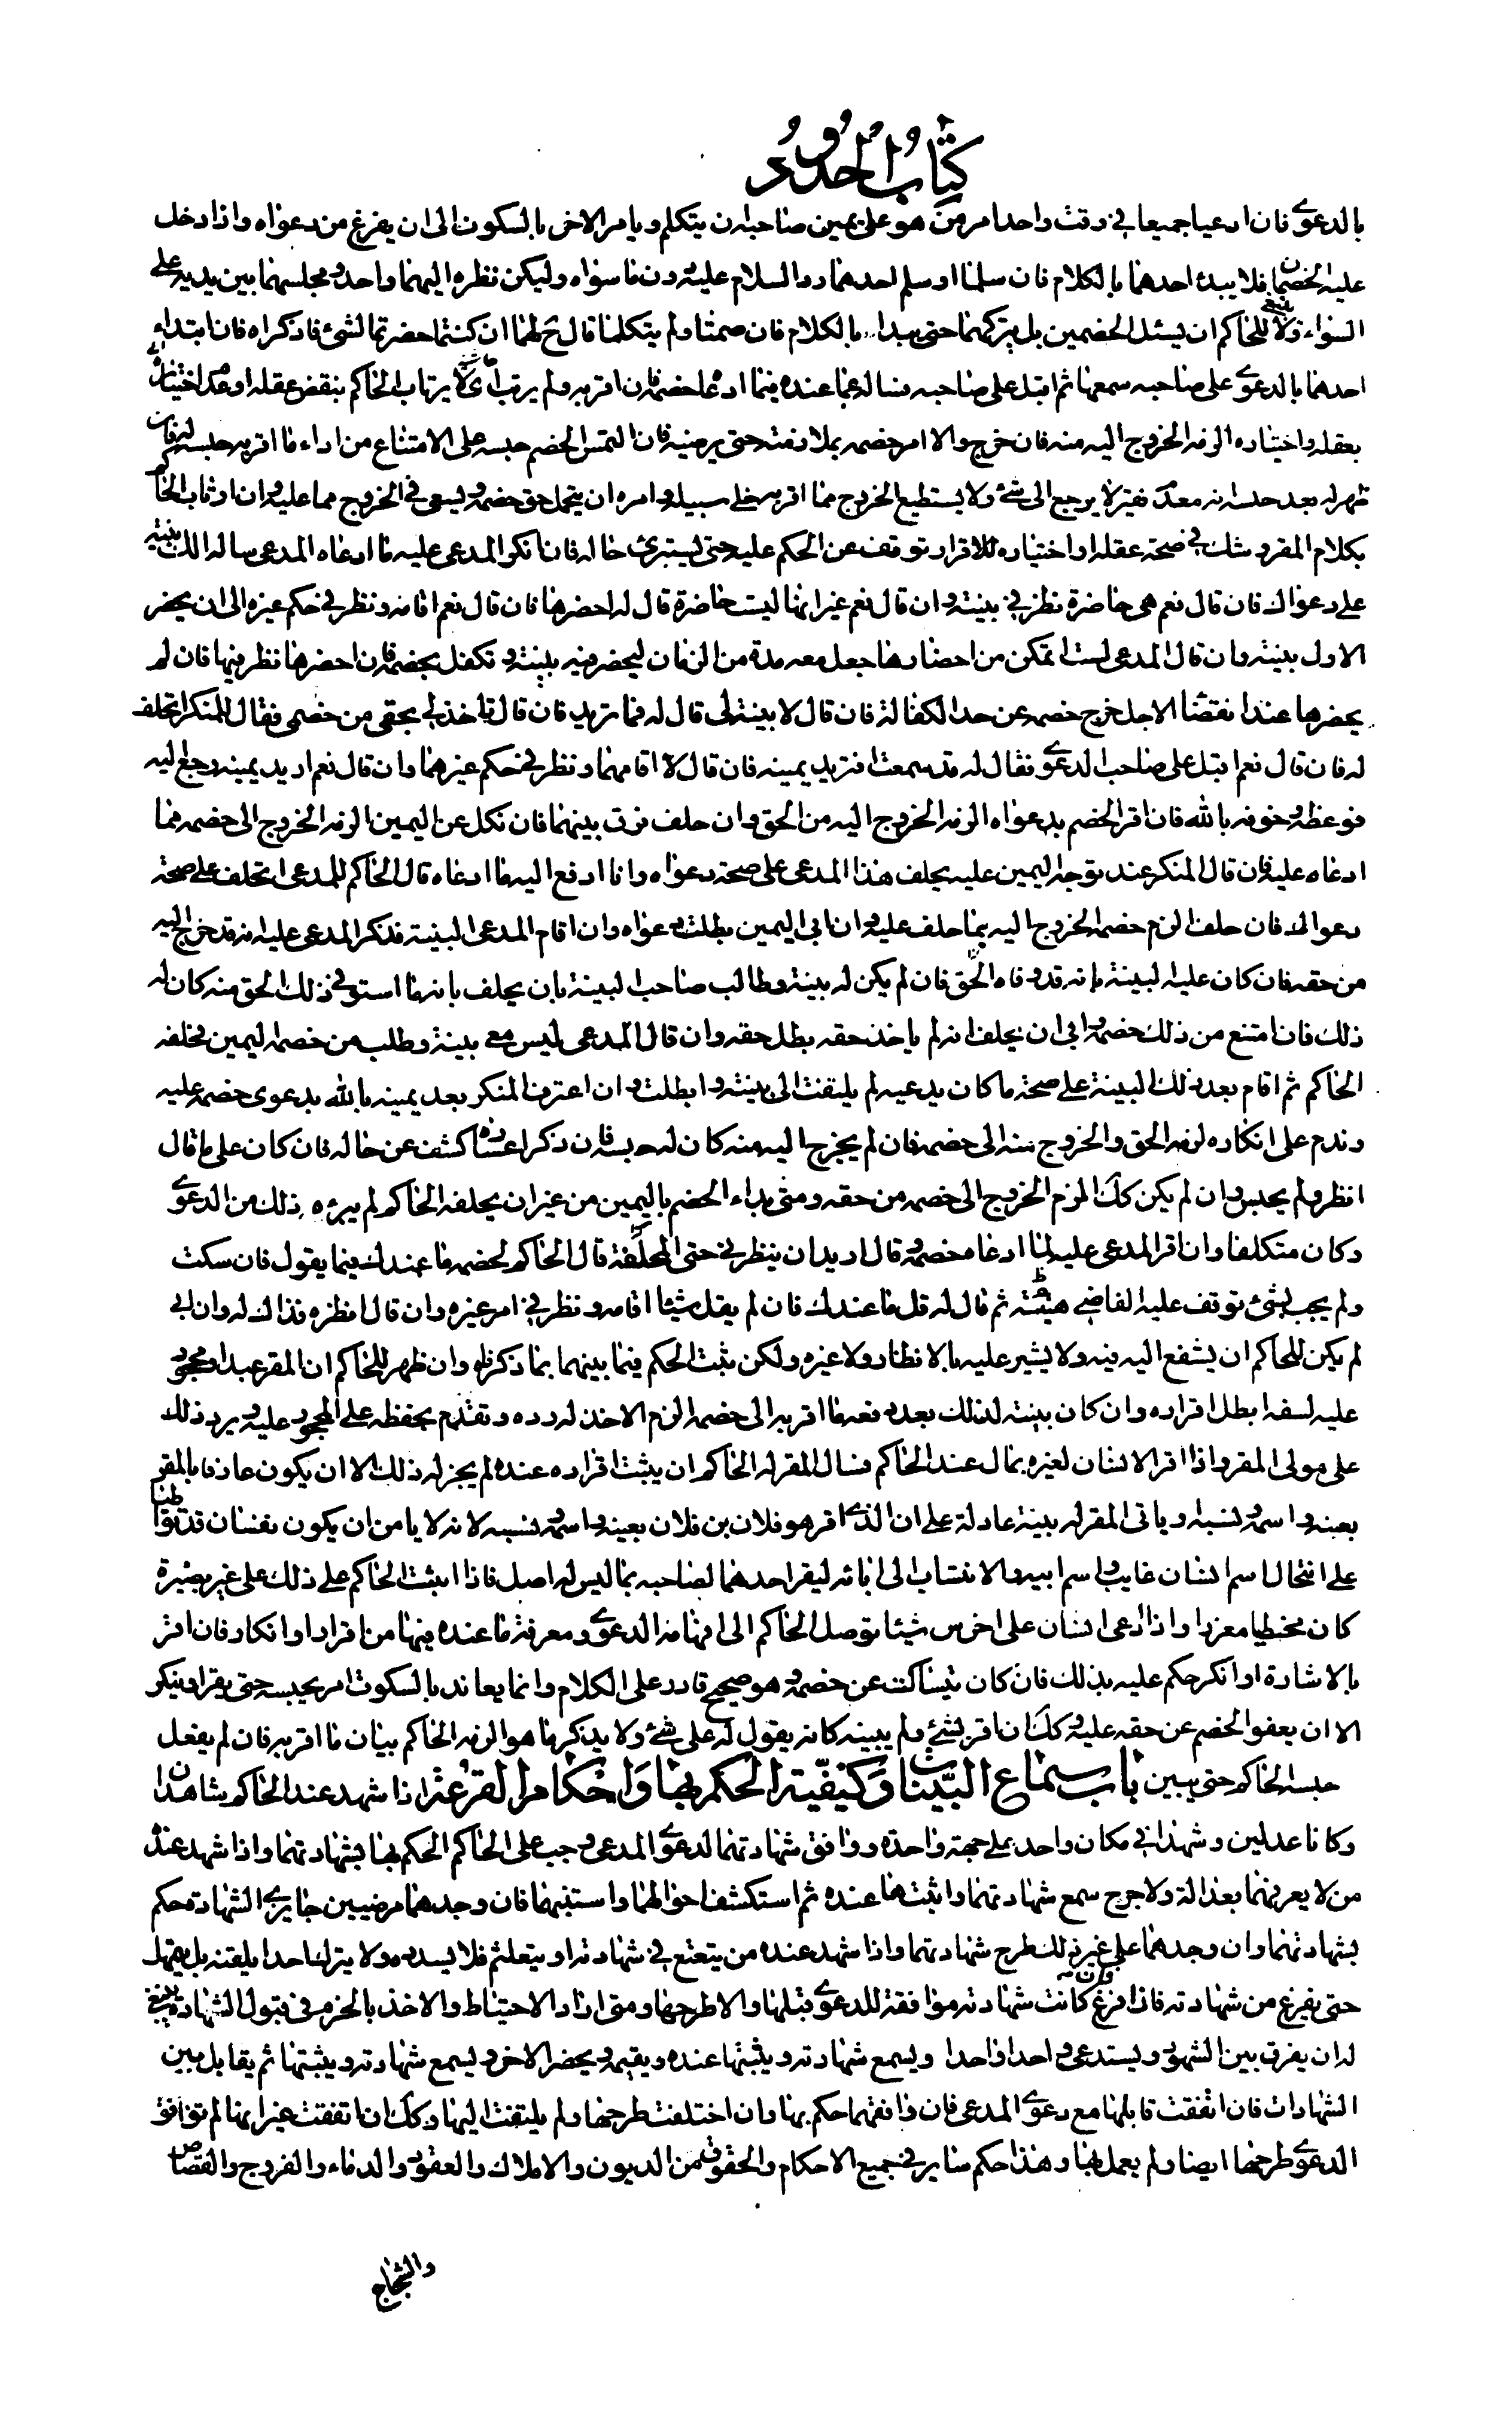 كتاب الحدود
بالدعوى فان ادعيا جميعا في وقت واحد امر من هو على يمين صاحبه ان يتكلم ويامر الاخر بالسكوت الى ان يفرغ من دعواه واذا دخل
عليه الخصمان فلا يبدء احدهما بالكلام فان سلما او سلم احدهما رد السلام عليه دون ما سواه وليكن نظره اليهما واحدا ومجلسهما بين يديه على
السواء ولا ينبغي للحاكم ان يسئل الخصمين بل يتركهما حتى يبداء بالكلام فان صمتا ولم يتكلما قال ح لهما ان كنتما حضرتما لشئ فاذكراه فان ابتداء
احدهما بالدعوى على صاحبه سمعها ثم اقبل على صاحبه فساله عما عنده فيما ادعاه خصمه فان اقر به ولم يرتاب الحاكم بنقص عقله او عدم اختياره
بعقله واختياره الزمه الخروج اليه منه فان خرج والا امر خصمه بملازمته حتى يرضيه فان التمس الخصم حبسه على الامتناع من اداء ما اقر به حبسه له فان
ظهر له بعد حبسه انه معدم فقير لا يرجع الى شئ ولا يستطيع الخروج مما اقر به خلى سبيله وامره ان يتحمل حق خصمه ويسعى في الخروج مما عليه وان ارتاب الحاكم
بكلام المقر وشك في صحة عقله او اختياره للاقرار توقف عن الحكم عليه حتى يستبرئ حاله فان انكر المدعى عليه ما ادعاه المدعي ساله الك بينة
على دعواك فان قال نعم هي حاضرة نظر في بينته وان قال نعم غير انها ليست حاضرة قال له احضرها فان قال نعم اقامه ونظر في حكم غيره الى ان يحضر
الاول بينته وان قال المدعي لست اتمكن من احضارها جعل معه مدة من الزمان ليحضر فيه بينته وتكفل بخصمه فان احضرها نظر فيها فان لم
يحضرها عند انقضاء الاجل خرج خصمه عن حد الكفالة فان قال لا بينة لي قال له فما تريد فان قال تاخذ لي بحقي من خصمي فقال للمنكر اتحلف
له فان قال نعم اقبل على صاحب الدعوى فقال له قد سمعت افتريد يمينه فان قال لا اقامهما ونظر في حكم غيرهما وان قال نعم اريد يمينه رجع اليه
فوعظه وخوفه بالله فان اقر الخصم بدعواه الزمه الخروج اليه من الحق وان حلف فرق بينهما فان نكل عن اليمين الزمه الخروج الى خصمه مما
ادعاه عليه فان قال المنكر عند توجه اليمين عليه يحلف هذا المدعي على صحة دعواه وانا ادفع اليه ما ادعاه قال الحاكم للمدعي اتحلف على صحة
دعواك فان حلف الزم خصمه الخروج اليه بما حلف عليه وان ابى اليمين بطلت دعواه وان اقام المدعي البينة فذكر المدعى عليه انه قد خرج اليه
من حقه فان كان عليه البينة بانه قد وفاه الحق فان لم يكن له بينة وطالب صاحب البينة بان يحلف بانه ما استوفى ذلك الحق منه كان له
ذلك فان امتنع من ذلك خصمه وابى ان يحلف انه لم ياخذ حقه بطل حقه وان قال المدعي ليس معي بينة وطلب من خصمه اليمين فحلفه
الحاكم ثم اقام بعد ذلك البينة على صحة ما كان يدعيه لم يلتفت الى بينته وابطلت وان اعترف المنكر بعد يمينه بالله بدعوى خصمه عليه
وندم على انكاره لزمه الحق والخروج منه الى خصمه فان لم يخرج اليه منه كان له حبسه فان ذكر اعساره كشف عن حاله فان كان على ما قال
انظر ولم يحبس وان لم يكن كك الزم الخروج الى خصمه من حقه ومتى بداء الخصم باليمين من غير ان يحلفه الحاكم لم يبرءه ذلك من الدعوى
وكان متكلفا وان اقر المدعى عليه لما ادعاه خصمه وقال اريد ان ينظرني حتى قال الحاكم لخصمه ما عندك فيما يقول فان سكت
ولم يجب بشئ توقف عليه القاضي هنيئة ثم قال له قل ما عندك فان لم يقل شيئا اقامه ونظر في امر غيره وان قال انظره فذاك له وان ابى
لم يكن للحاكم ان يشفع اليه فيه ولا يشير عليه بالانظار ولا غيره ولكن يثبت الحكم فيما بينهما بما ذكرناه وان ظهر للحاكم ان المقر عبد او محجور
عليه لسفه ابطل اقراره وان كان بينته لذلك بعد دفعه ما اقر به الى خصمه الزم الاخذ له رده وتقدم بحفظه على المحجور عليه ويرد ذلك
على مولى المقر واذا اقر الانسان لغيره بمال عند الحاكم فسال المقر له الحاكم ان يثبت اقراره عنده لم يجز له ذلك الا ان يكون عارفا بالمقر
بعينه واسمه ونسبه او ياتي المقر له ببينة عادلة على ان الذي اقر هو فلان بن فلان بعينه واسمه ونسبه لانه لا يامن ان يكون نفسان قد تواطئا
على انتحال اسم انسان غايب واسم ابيه والانتساب الى ابائه ليقر احدهما لصاحبه بما ليس له اصل فاذا اثبت الحاكم على ذلك على غير بصيرة
كان مخطيا مغررا واذا ادعى انسان على اخرس شيئا توصل الحاكم الى افهامه الدعوى ومعرفة ما عنده فيها من اقرار او انكار فان اقر
بالاشارة او انكر حكم عليه بذلك فان كان يتساكت عن خصمه وهو صحيح قادر على الكلام وانما يعاند بالسكوت امر بحبسه حتى يقر او ينكر
الا ان يعفو الخصم عن حقه عليه وكك ان اقر بشئ ولم يبينه كانه يقول له على شئ ولا يذكر ما هو الزمه الحاكم بيان ما اقر به فان لم يفعل
حبسه الحاكم حتى يبين باب سماع البينات وكيفية الحكم بها واحكام القرعة اذا شهد عند الحاكم شاهدان
وكانا عدلين وشهدا في مكان واحد على جهة واحدة ووافق شهادتهما لدعوى المدعي وجب على الحاكم الحكم بها بشهادتهما واذا شهد عنده
من لا يعرفهما بعدالة ولا جرح سمع شهادتهما واثبتها عنده ثم استكشف احوالهما واستثبتهما فان وجدهما مرضيين جايزي الشهادة حكم
بشهادتهما وان وجدهما على غير ذلك طرح شهادتهما واذا شهد عنده من يتعتع في شهادته او يتعلثم فلا يسدده ولا يترك احدا يلقنه بل يمهله
حتى يفرغ من شهادته فاذا فرغ فان كانت شهادته موافقة للدعوى قبلها والا طرحها ومتى اراد الاحتياط والاخذ بالحزم في قبول الشهادة ينبغي
له ان يفرق بين الشهود ويستدعي واحدا واحدا ويسمع شهادته ويثبتها عنده ويقيمه ويحضر الاخر ويسمع شهادته ويثبتها ثم يقابل بين
الشهادات فان اتفقت قابلها مع دعوى المدعي فان وافقتهما حكم بها وان اختلفت طرحها ولم يلتفت اليها وكك ان اتفقت غير انها لم توافق
الدعوى طرحها ايضا ولم يعمل بها وهذا حكم ساير في جميع الاحكام والحقوق من الديون والاملاك والعقود والدماء والفروج والقصاص
والشجاج